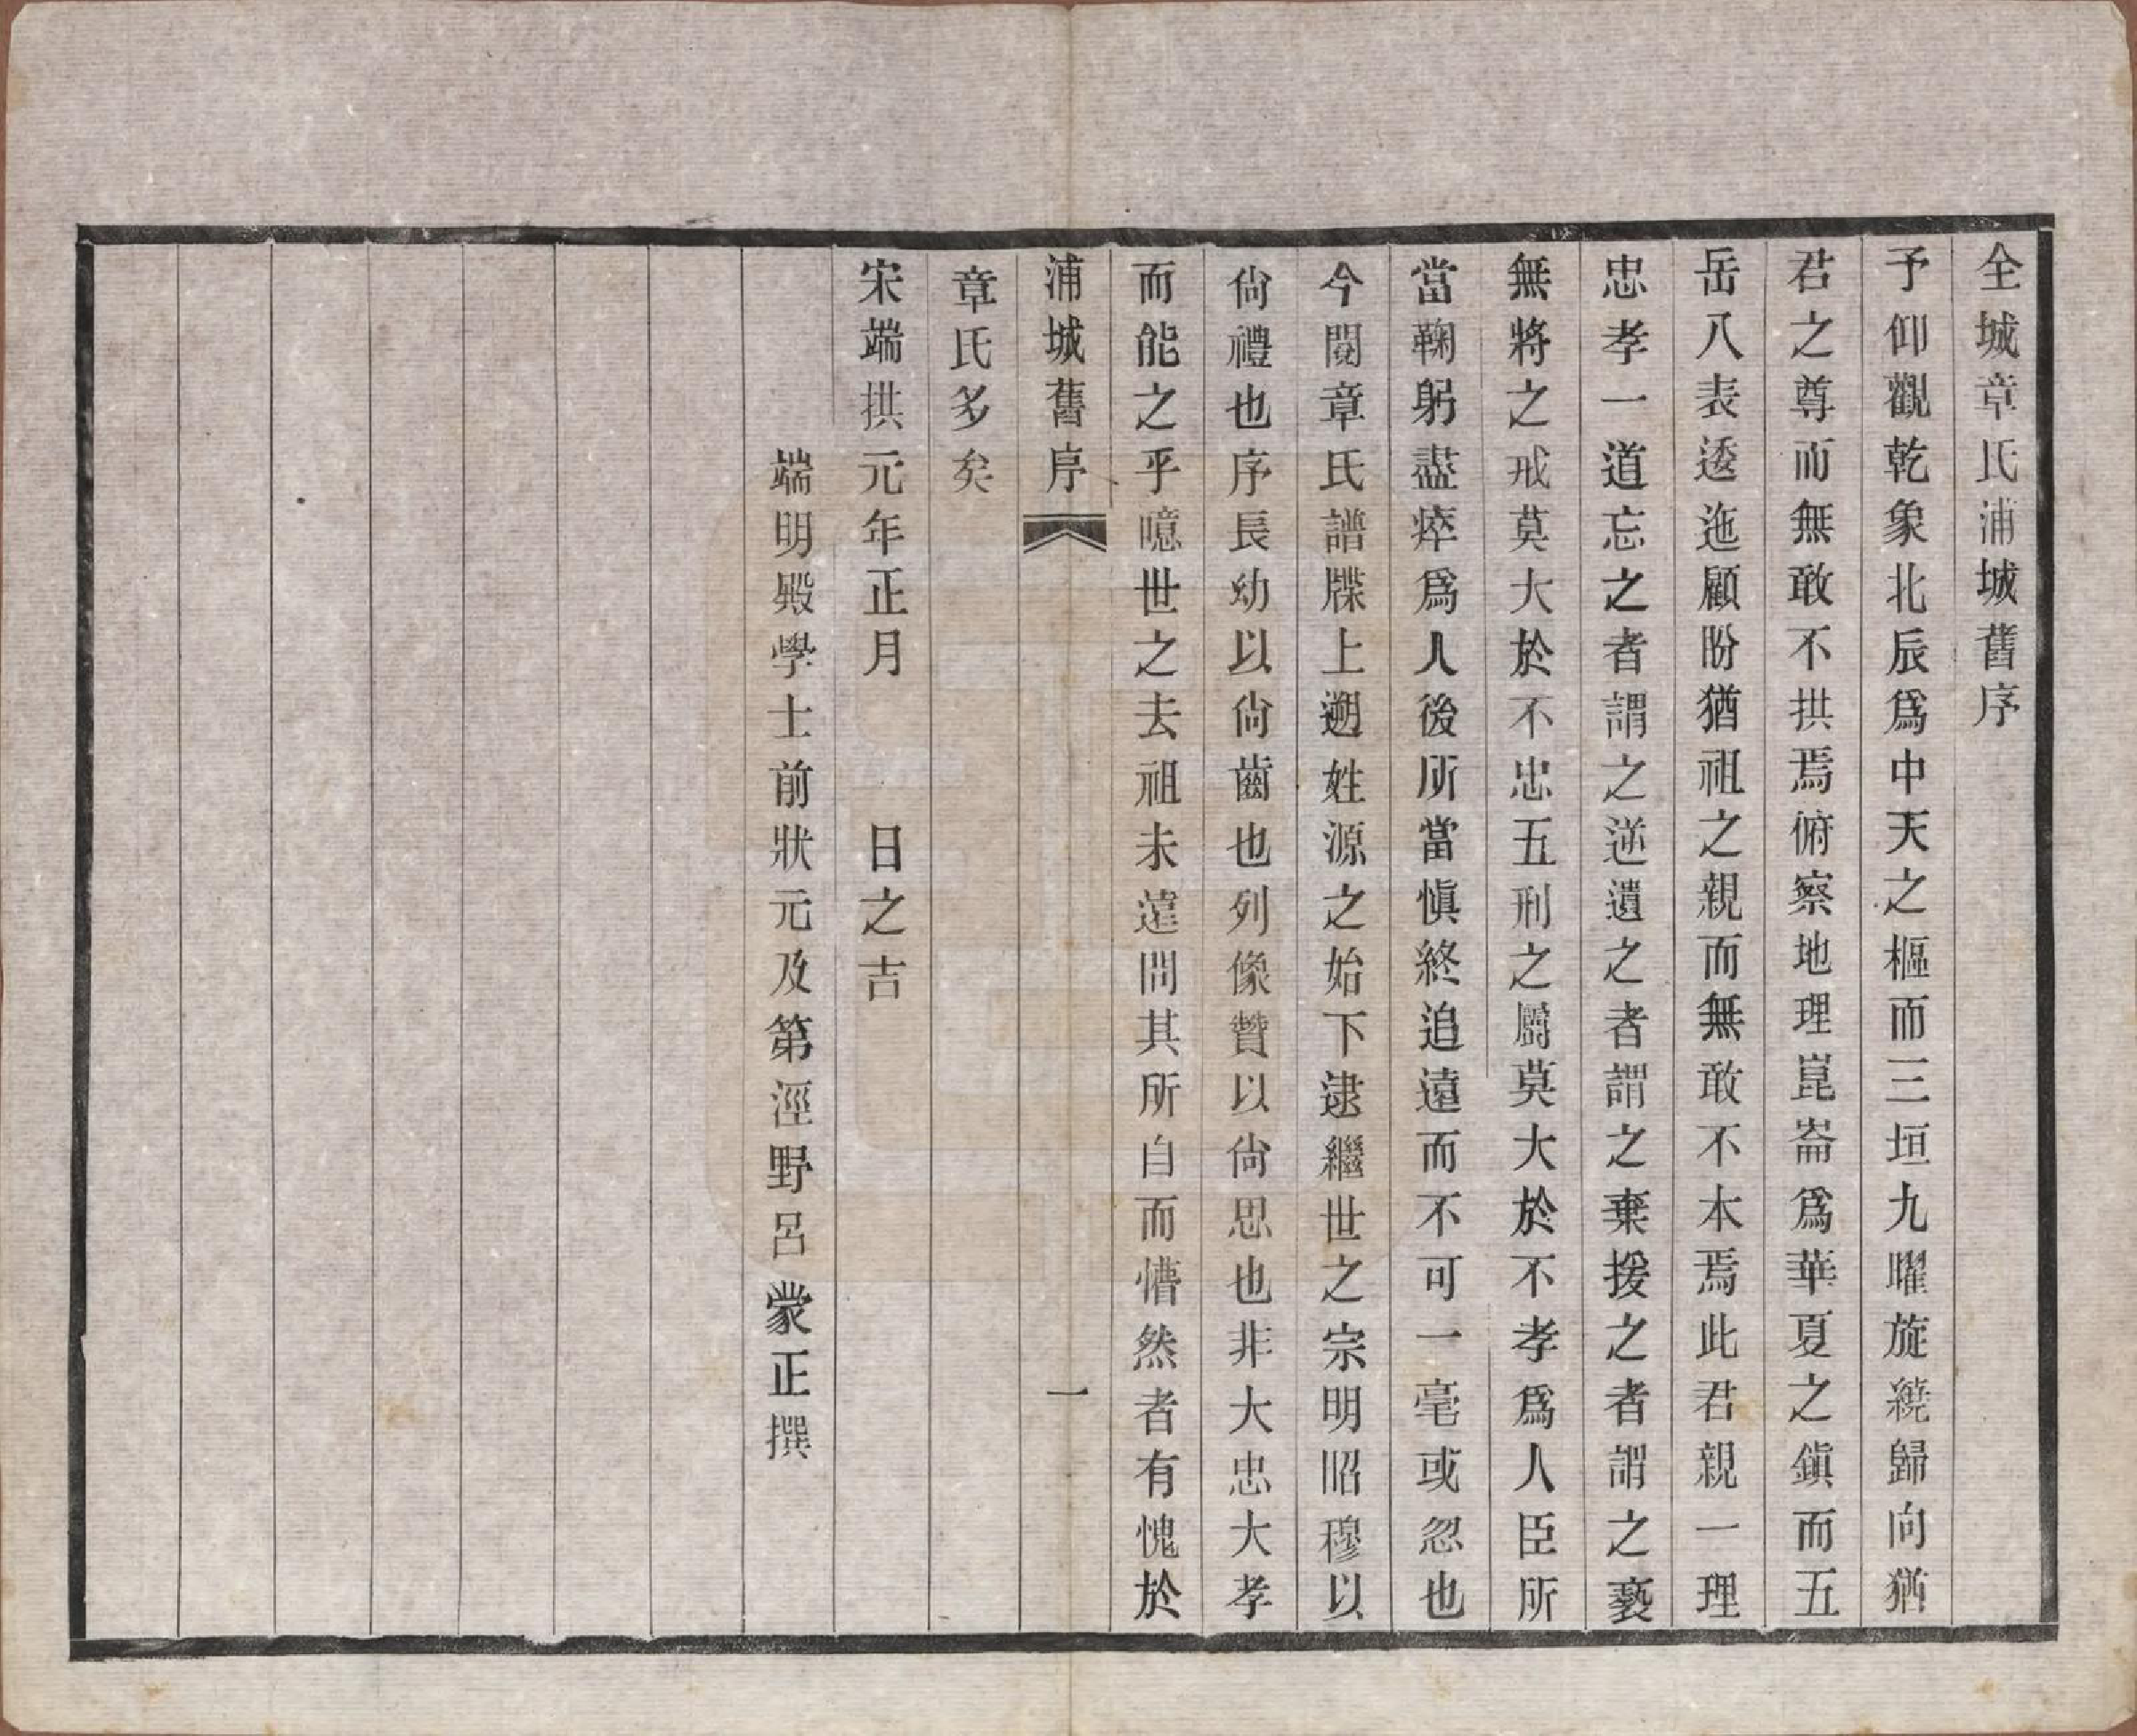 全城章氏浦城舊序
予仰觀乾象北辰爲中天之樞而三垣九曜旋繞歸向猶
君之尊而無敢不拱焉俯察地理崑崙爲華夏之鎭而五
岳八表逶迤顧盼猶祖之親而無敢不本焉此君親一理
忠孝一道忘之者謂之逆遺之者謂之棄援之者謂之褻
無將之戒莫大於不忠五刑之屬莫大於不孝爲人臣所
當鞠躬盡瘁爲人後所當愼終追遠而不可一毫或忽也
今閱章氏譜牒上遡姓源之始下逮繼世之宗明昭穆以
尙禮也序長幼以尙齒也列像贊以尙思也非大忠大孝
而能之乎噫世之去祖未遠問其所自而懵然者有愧於
浦城舊序 一
章氏多矣
宋端拱元年正月 日之吉
端明殿學士前狀元及第涇野呂蒙正撰